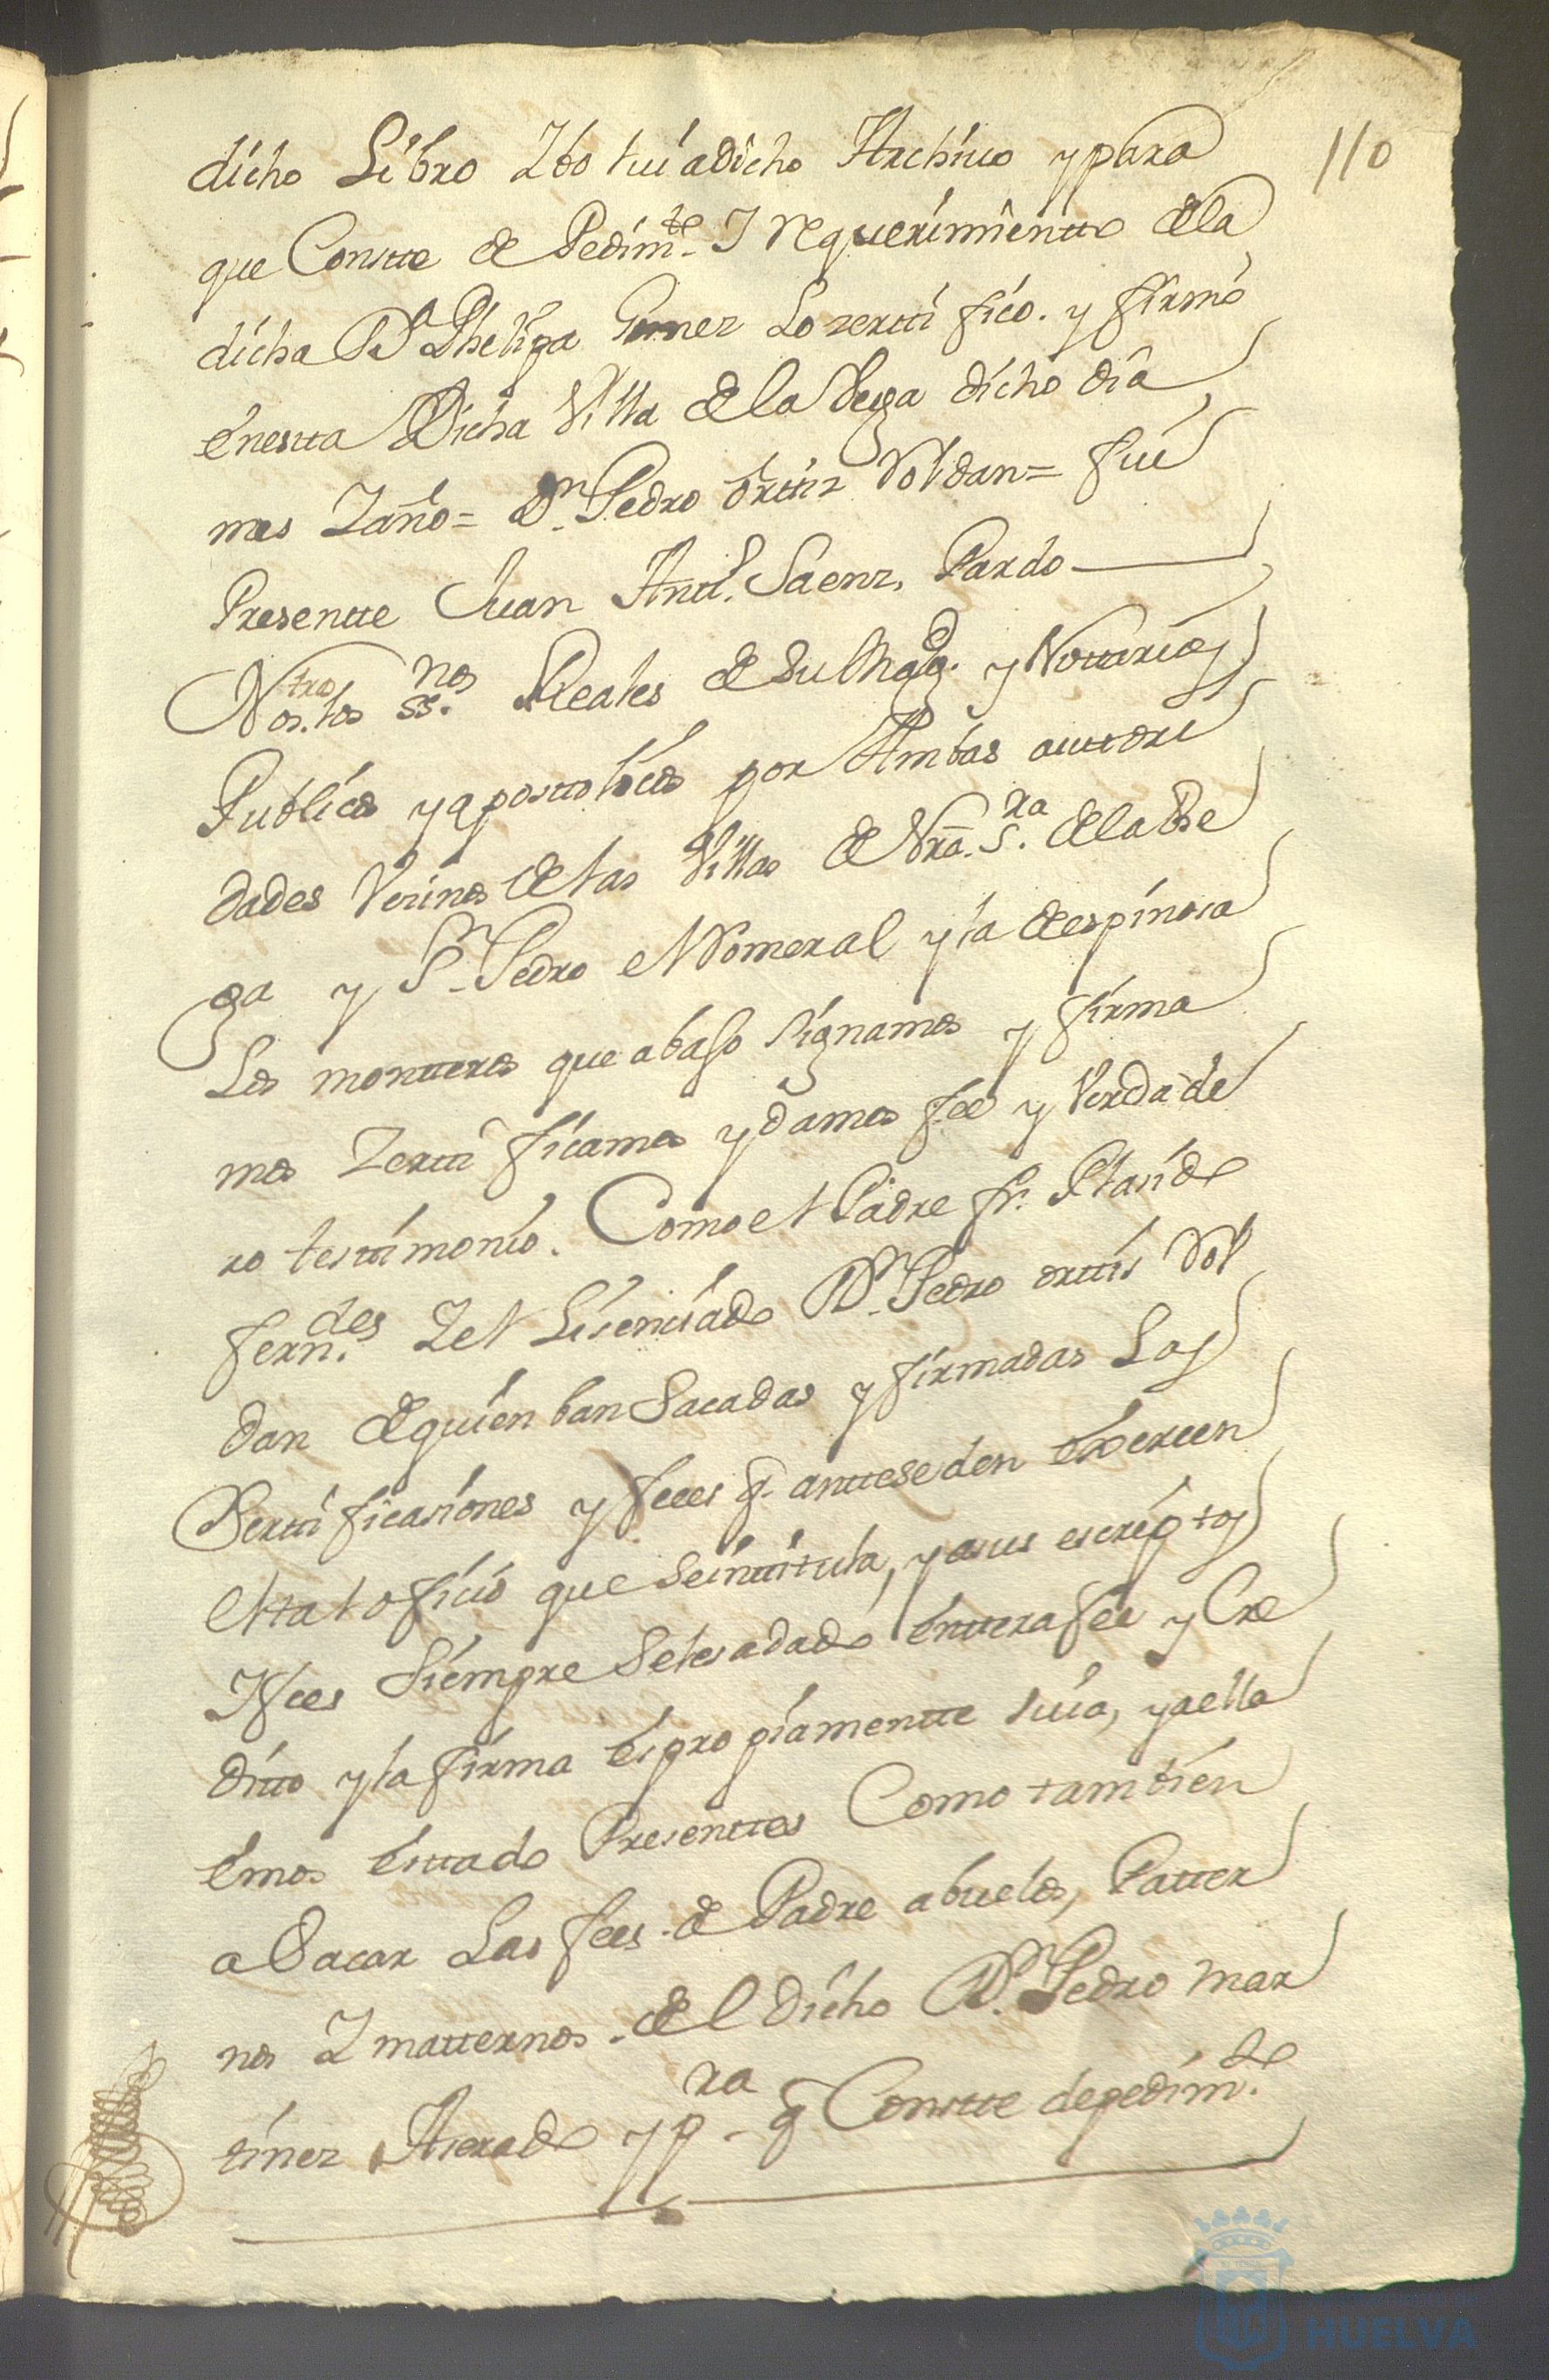 110
dicho Libro Zbolui a dicho Archiuo y para
que Constte de Pedimto. I requerimientto de la
dicha Da. Phelipa Gomez Lo zerttifico. y firmo
en estta Dicha Villa de la Vega dicho dia
mes Zaño = Dn. Pedro Orttiz Roldan = fui
Presentte Juan Antto. Saenz, Pardo
Nos. tros los ssnos. Reales de Su Magd. y Nottarios
Publicos y aposttolicos por Ambas auttori
dades Vezinos de las Villas de Nra. Sra. de la Ve
ga y Sn. Pedro el Romeral y la de espinosa
Los montteros que abaJo Signamos y firma
mos Zerttificamos y damos fee y Verdade
ro testtimonio. Como el Padre fr. Plasido
fernndes. Zel Lisensiado Dn. Pedro orttis Rol
dan de quien ban Sacadas y firmadas Las
Serttificasiones y fees q. antteseden exercen
el tal ofisio que Se inttitula, y a sus escriptos
Nees Siempre Seles a dado enttera fee y Cre
ditto y la firma es propiamentte suia, y a ella
emos esttado Presenttes Como tambien
a Sacar Las fees de Padre abuelos, Patter
nos Z matternos. del dicho Dn. Pedro mar
tinez Aserado y pra. q Constte de pedimto.
HUELVA